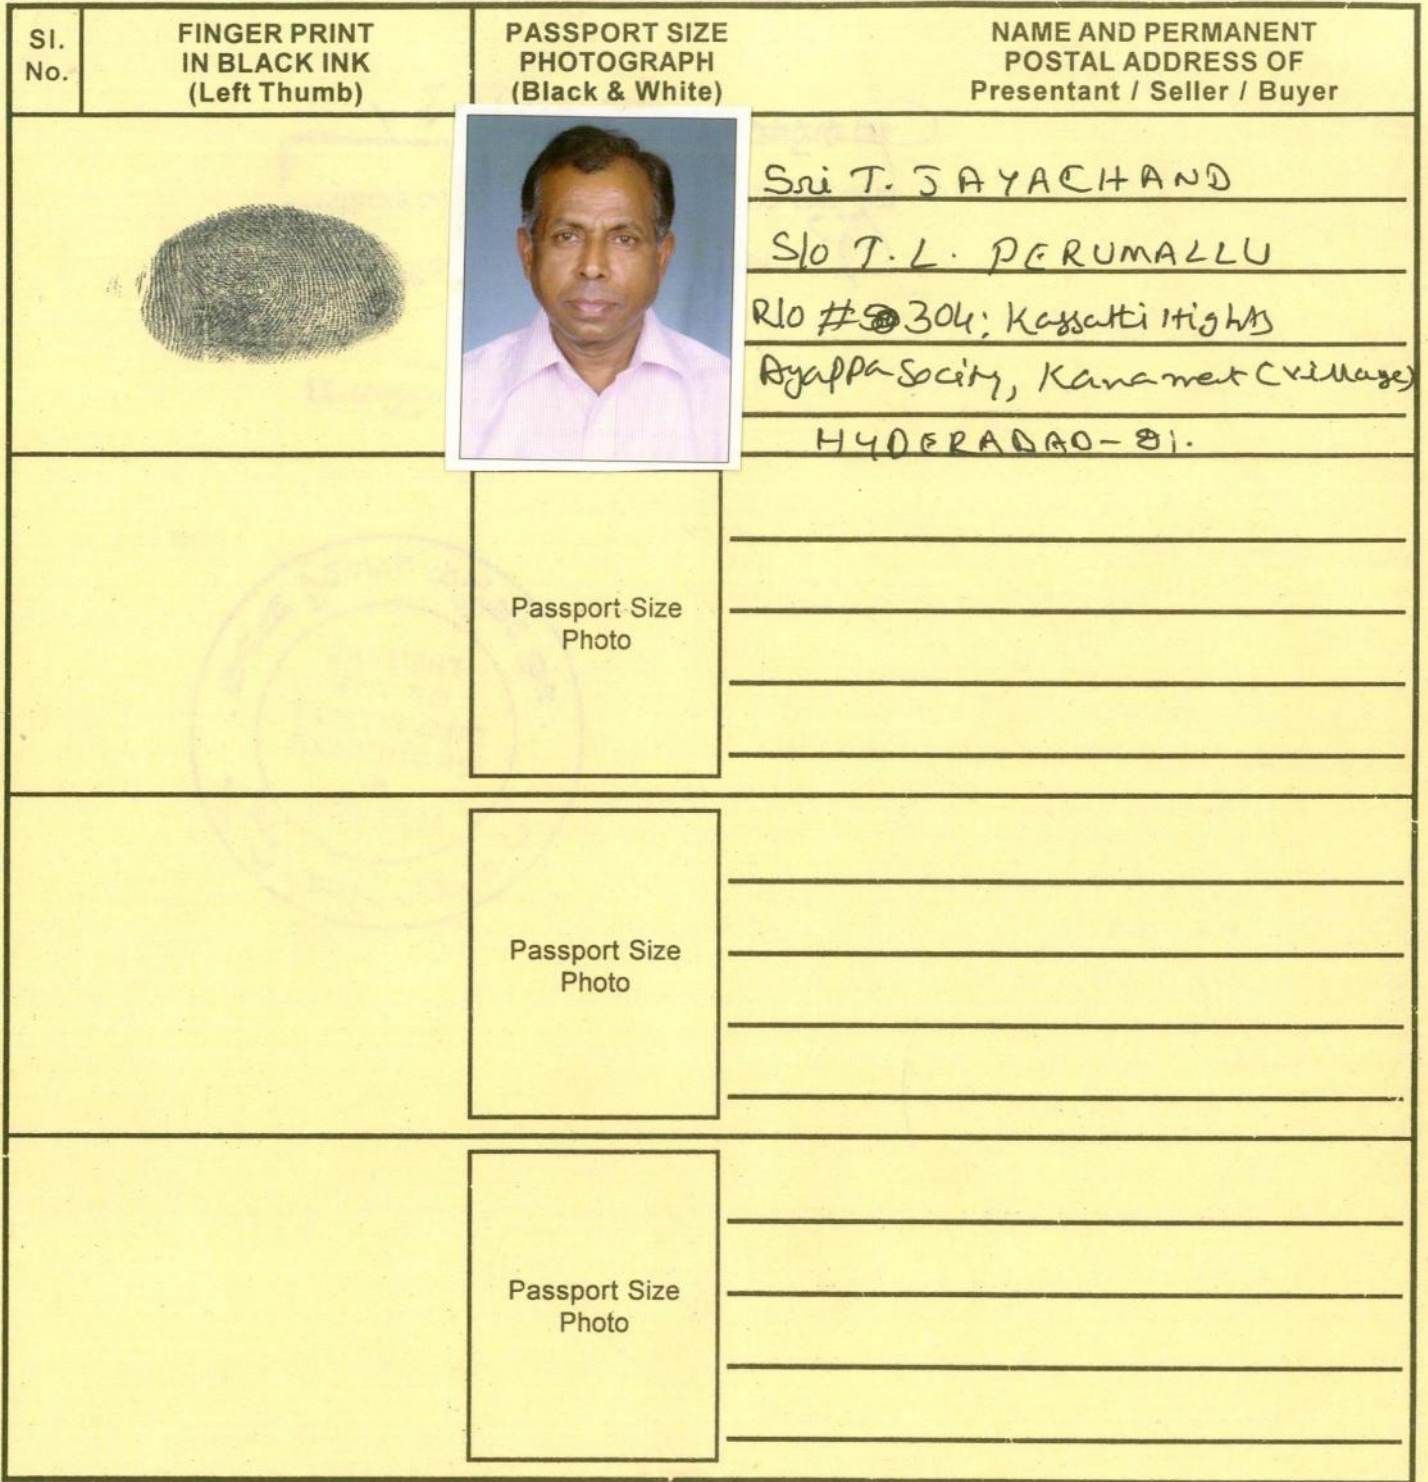 Sl. No.
FINGER PRINT IN BLACK INK (Left Thumb)
PASSPORT SIZE PHOTOGRAPH (Black & White)
NAME AND PERMANENT POSTAL ADDRESS OF Presentant / Seller / Buyer
Sri T. JAYACHAND
S/o T.L. PERUMALLU
R/o # 304; Kassatti Hights
Ayappa Society, Kanamet (village)
HYDERABAD-81.
Passport Size
Photo
Passport Size
Photo
Passport Size
Photo